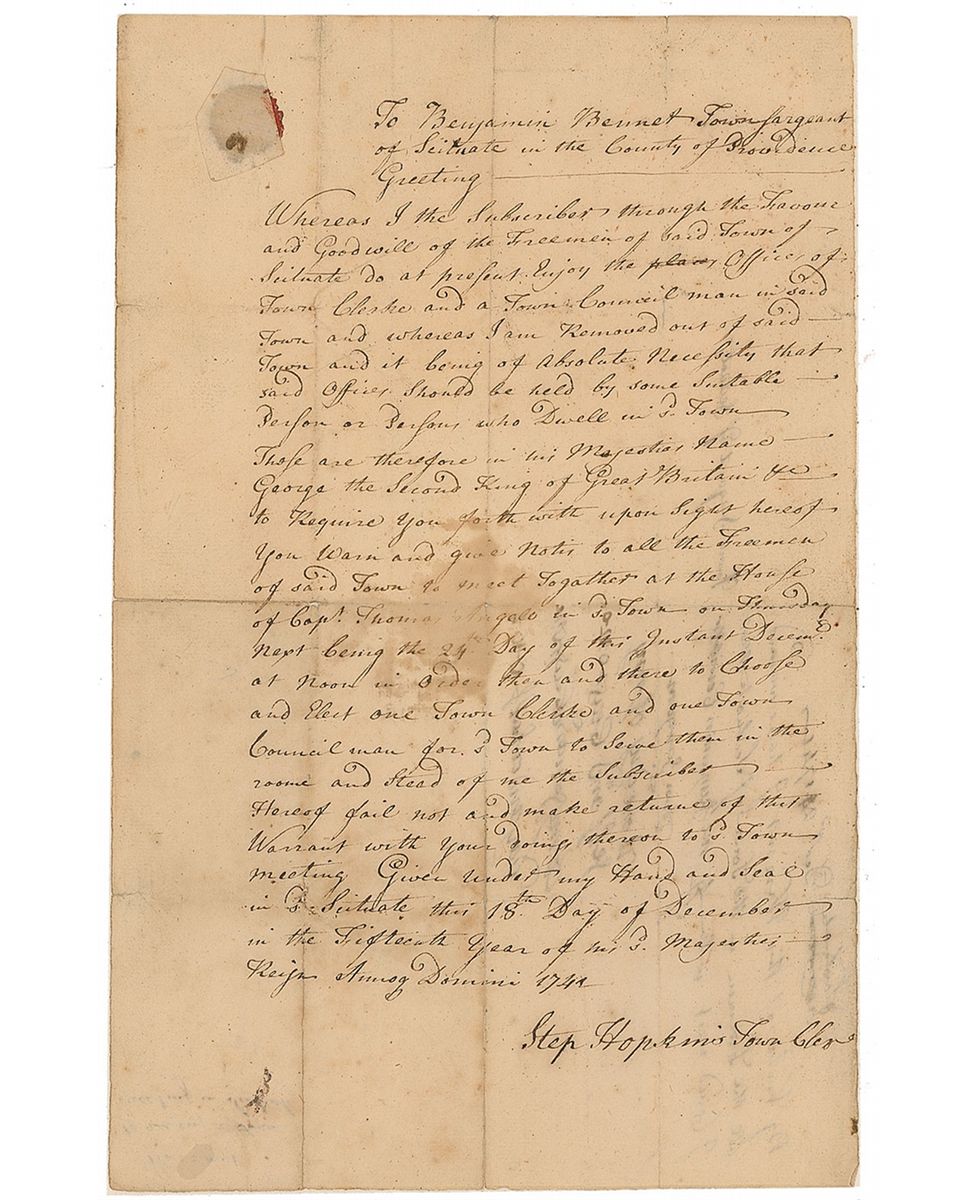 To Benjamin Bennet Town Sargeant
of Scituate in the County of Providence
Greeting
Whereas I the Subscriber through the Favour
and Goodwill of the Freemen of said Town of
Scituate do at present Enjoy the places Offices of
Town Clerke and a Town Council man in said
Town and whereas I am Removed out of said
Town and it being of Absolute Necessity that
said Offices Should be held by some Suitable
Person or Persons who Dwell in sd. Town
These are therefore in his Majesties Name
George the Second King of Great Britain &c
to Require You forth with upon Sight hereof
You Warn and give Notis to all the Freemen
of said Town to meet Togather at the House
of Capt. Thomas Angele in sd. Town on Thursday
next being the 24th Day of this Instant Decemr.
at Noon in Order then and there to Choose
and Elect one Town Clerke and one Town
Council man for sd. Town to Serve them in the
roome and Stead of me the Subscriber
Hereof fail not and make returne of this
Warrant with Your doing thereon to sd. Town
meeting Given under my Hand and Seal
in sd. Scituate this 18th. Day of December
in the Fifteenth Year of his sd. Majesties
Reign Annoq Domini 1741
Step Hopkins Town Cler